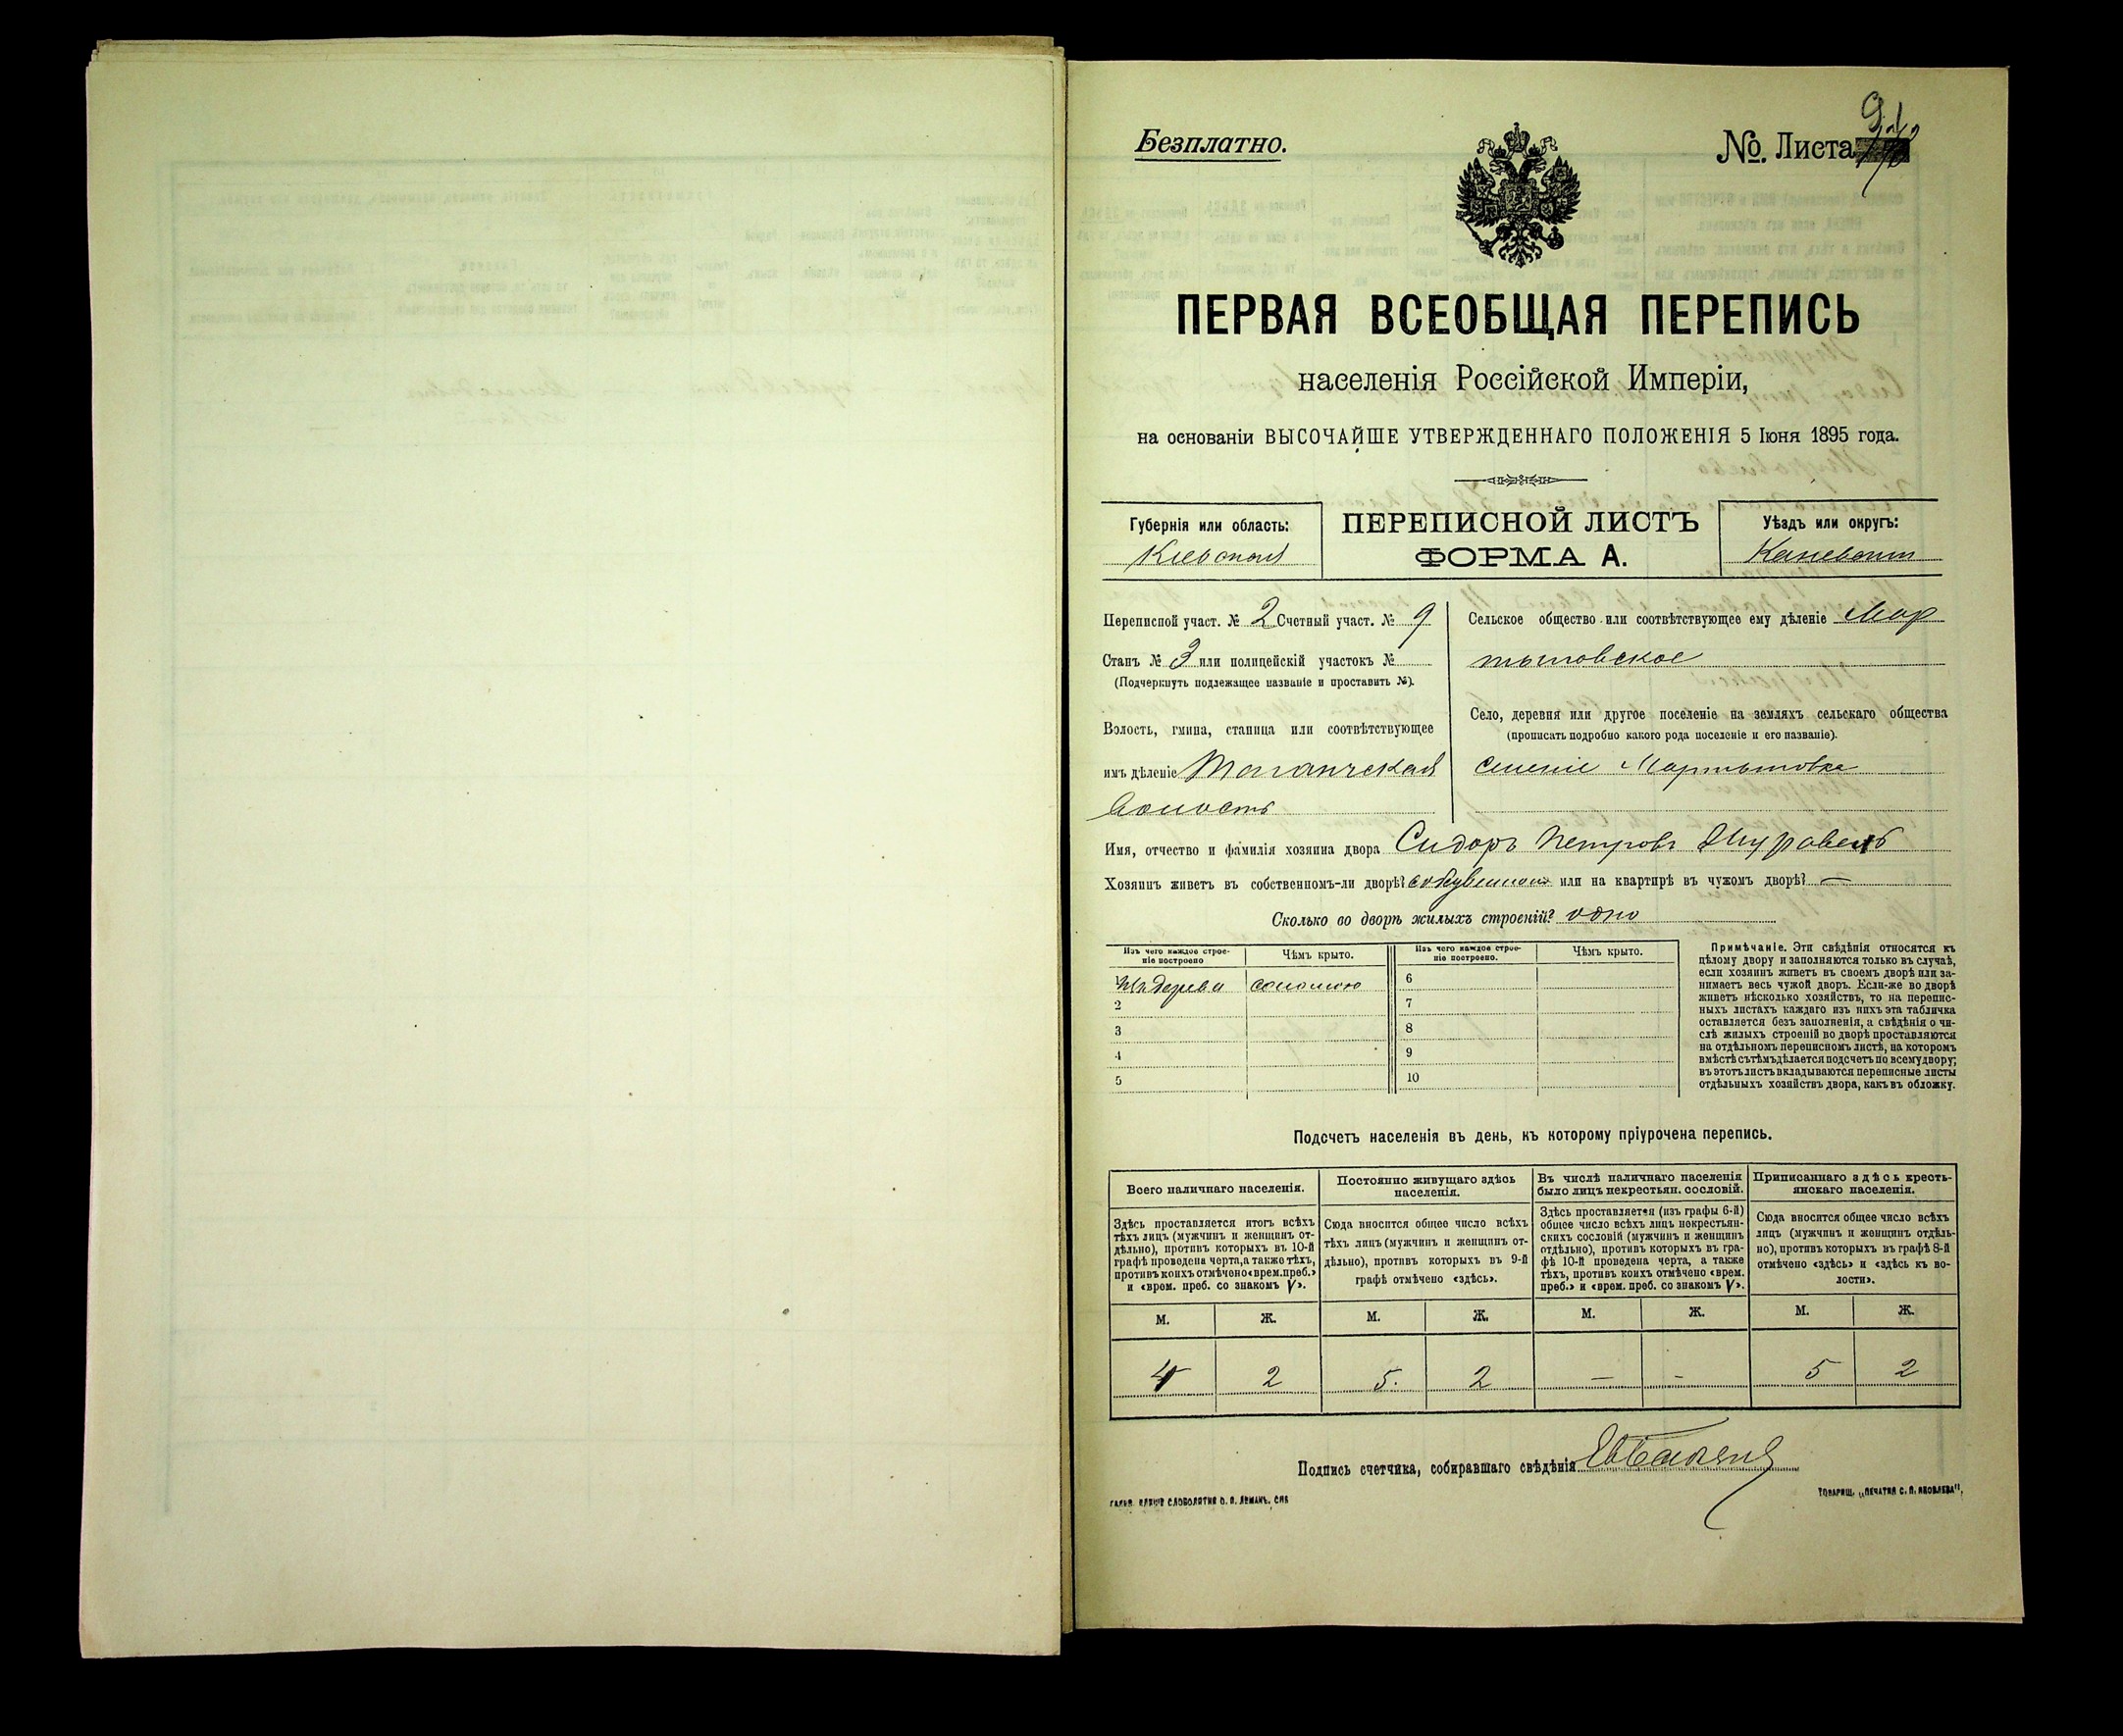 Безплатно.
№. Листа
ПЕРВАЯ ВСЕОБЩАЯ ПЕРЕПИСЬ
населенія Россійской Имперіи,
на основаніи ВЫСОЧАЙШЕ УТВЕРЖДЕННАГО ПОЛОЖЕНІЯ 5 Іюня 1895 года.
Губернія или область:
Кіевская
ПЕРЕПИСНОЙ ЛИСТЪ
ФОРМА А.
Уѣздъ или округъ:
Каневскій
Переписной участ. № 2 Счетный участ. № 9
Станъ № 3 или полицейскій участокъ №
(Подчеркнуть подлежащее названіе и проставить №).
Волость, гмина, станица или соотвѣтствующее
имъ дѣленіе Таганчская
волость
Сельское общество или соотвѣтствующее ему дѣленіе Мар
тыновское
Село, деревня или другое поселеніе на земляхъ сельскаго общества
(прописать подробно какого рода поселеніе и его названіе).
селеніе Мартыновка
Имя, отчество и фамилія хозяина двора Сидоръ Петровъ Журавель
Хозяинъ живетъ въ собственномъ-ли дворѣ? или на квартирѣ въ чужомъ дворѣ? —
Сколько во дворѣ жилыхъ строеній? одно
Изъ чего каждое строе-
ніе построено
Чѣмъ крыто.
Изъ чего каждое строе-
ніе построено.
Чѣмъ крыто.
1 Изъ дерева соломою
2
3
4
5
6
7
8
9
10
Примѣчаніе. Эти свѣдѣнія относятся къ
цѣлому двору и заполняются только въ случаѣ,
если хозяинъ живетъ въ своемъ дворѣ или за-
нимаетъ весь чужой дворъ. Если-же во дворѣ
живетъ нѣсколько хозяйствъ, то на перепис-
ныхъ листахъ каждаго изъ нихъ эта табличка
оставляется безъ заполненія, а свѣдѣнія о чи-
слѣ жилыхъ строеній во дворѣ проставляются
на отдѣльномъ переписномъ листѣ, на которомъ
вмѣстѣ съ тѣмъ дѣлается подсчетъ по всему двору;
въ этотъ листъ вкладываются переписные листы
отдѣльныхъ хозяйствъ двора, какъ въ обложку.
Подсчетъ населенія въ день, къ которому пріурочена перепись.
Всего наличнаго населенія.
Постоянно живущаго здѣсь
населенія.
Въ числѣ наличнаго населенія
было лицъ некрестьян. сословій.
Приписаннаго здѣсь кресть-
янскаго населенія.
Здѣсь проставляется итогъ всѣхъ
тѣхъ лицъ (мужчинъ и женщинъ от-
дѣльно), противъ которыхъ въ 10-й
графѣ проведена черта, а также тѣхъ,
противъ коихъ отмѣчено «врем. преб.»
и «врем. преб. со знакомъ V».
Сюда вносится общее число всѣхъ
тѣхъ лицъ (мужчинъ и женщинъ от-
дѣльно), противъ которыхъ въ 9-й
графѣ отмѣчено «здѣсь».
Здѣсь проставляется (изъ графы 6-й)
общее число всѣхъ лицъ некрестьян-
скихъ сословій (мужчинъ и женщинъ
отдѣльно), противъ которыхъ въ гра-
фѣ 10-й проведена черта, а также
тѣхъ, противъ коихъ отмѣчено «врем.
преб.» и «врем. преб. со знакомъ V».
Сюда вносится общее число всѣхъ
лицъ (мужчинъ и женщинъ отдѣль-
но), противъ которыхъ въ графѣ 8-й
отмѣчено «здѣсь» и «здѣсь къ во-
лости».
М. Ж. М. Ж. М. Ж. М. Ж.
4 2 5. 2 — - 5 2
Подпись счетчика, собиравшаго свѣдѣнія
ТОВАРИЩ. „ПЕЧАТНЯ С. П. ЯКОВЛЕВА".